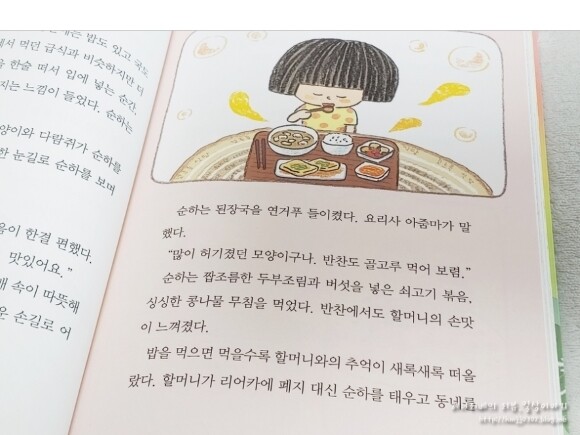 밥도 있고 국도
먹던 급식과 비슷하지만 더
한술 떠서 입에 넣는 순간,
지는 느낌이 들었다. 순하는
양이와 다람쥐가 순하를
한 눈길로 순하를 보며
음이 한결 편했다.
맛있어요."
속이 따뜻해
운 손길로 어
순하는 된장국을 연거푸 들이켰다. 요리사 아줌마가 말
했다.
"많이 허기졌던 모양이구나. 반찬도 골고루 먹어 보렴."
순하는 짭조름한 두부조림과 버섯을 넣은 쇠고기 볶음,
싱싱한 콩나물 무침을 먹었다. 반찬에서도 할머니의 손맛
이 느껴졌다.
밥을 먹으면 먹을수록 할머니와의 추억이 새록새록 떠올
랐다. 할머니가 리어카에 폐지 대신 순하를 태우고 동네를